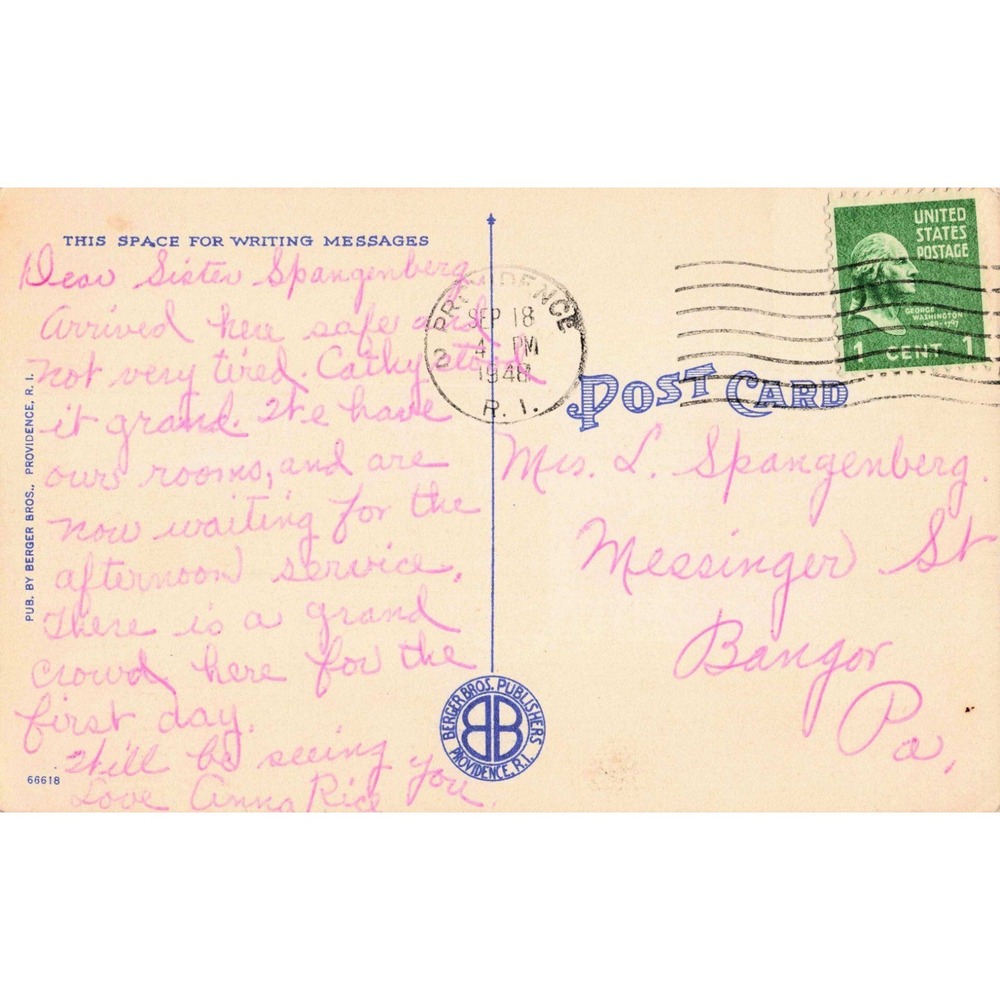 THIS SPACE FOR WRITING MESSAGES
Dear Sister Spangenberg
Arrived here safe and
not very tired. Cathy stood
it grand. We have
our rooms, and are
now waiting for the
afternoon service.
There is a grand
crowd here for the
first day.
Will be seeing you.
Love Anna Rice
PUB. BY BERGER BROS., PROVIDENCE, R. I.
66618
BERGER BROS. PUBLISHERS
BB
PROVIDENCE, R.I.
PROVIDENCE 2
SEP 18
4 PM
1948
R. I.
UNITED
STATES
POSTAGE
GEORGE
WASHINGTON
1789-1797
1 CENT 1
POST CARD
Mrs. L. Spangenberg.
Messinger St
Bangor
Pa.